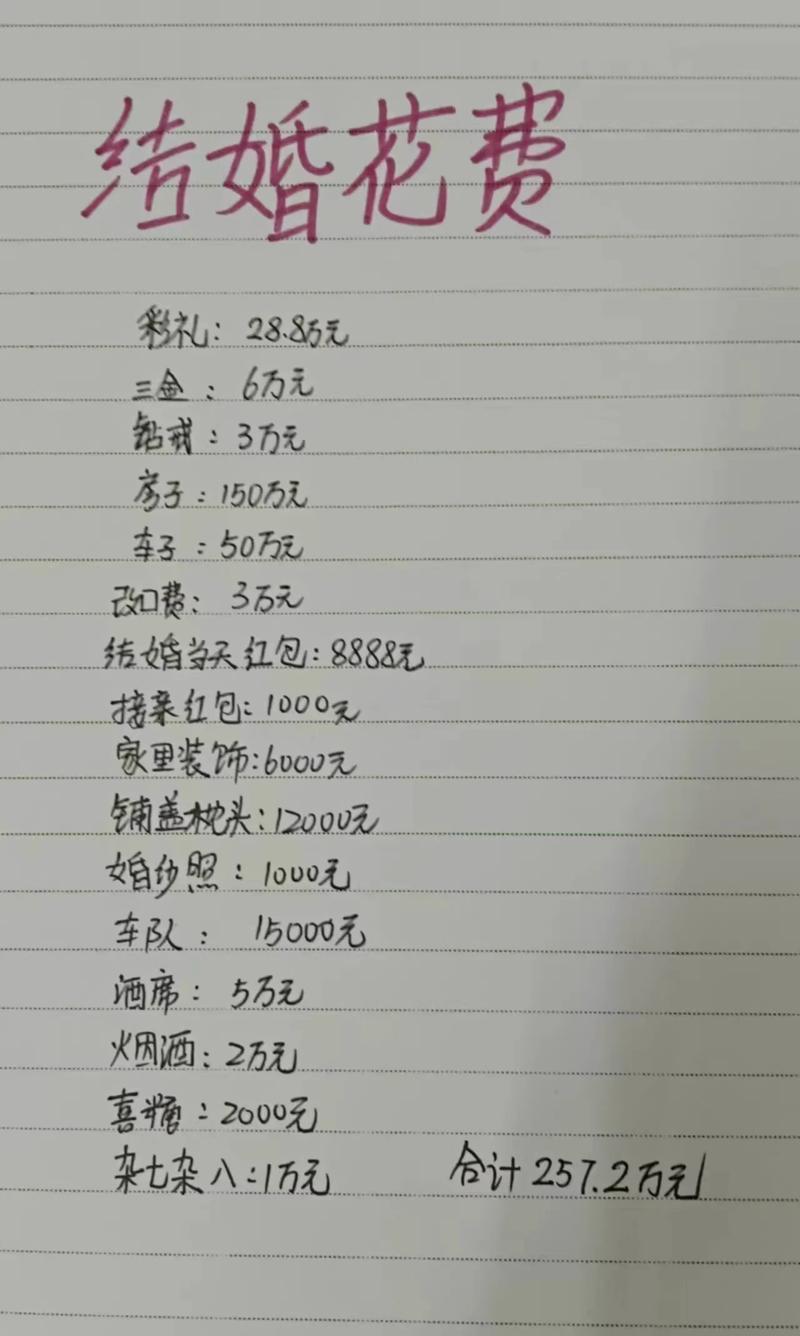 结婚花费
彩礼：28.8万元
三金：6万元
钻戒：3万元
房子：150万元
车子：50万元
改口费：3万元
结婚当天红包：8888元
接亲红包：1000元
家里装饰：6000元
铺盖枕头：12000元
婚纱照：1000元
车队：15000元
酒席：5万元
烟酒：2万元
喜糖：2000元
杂七杂八：1万元 合计257.2万元